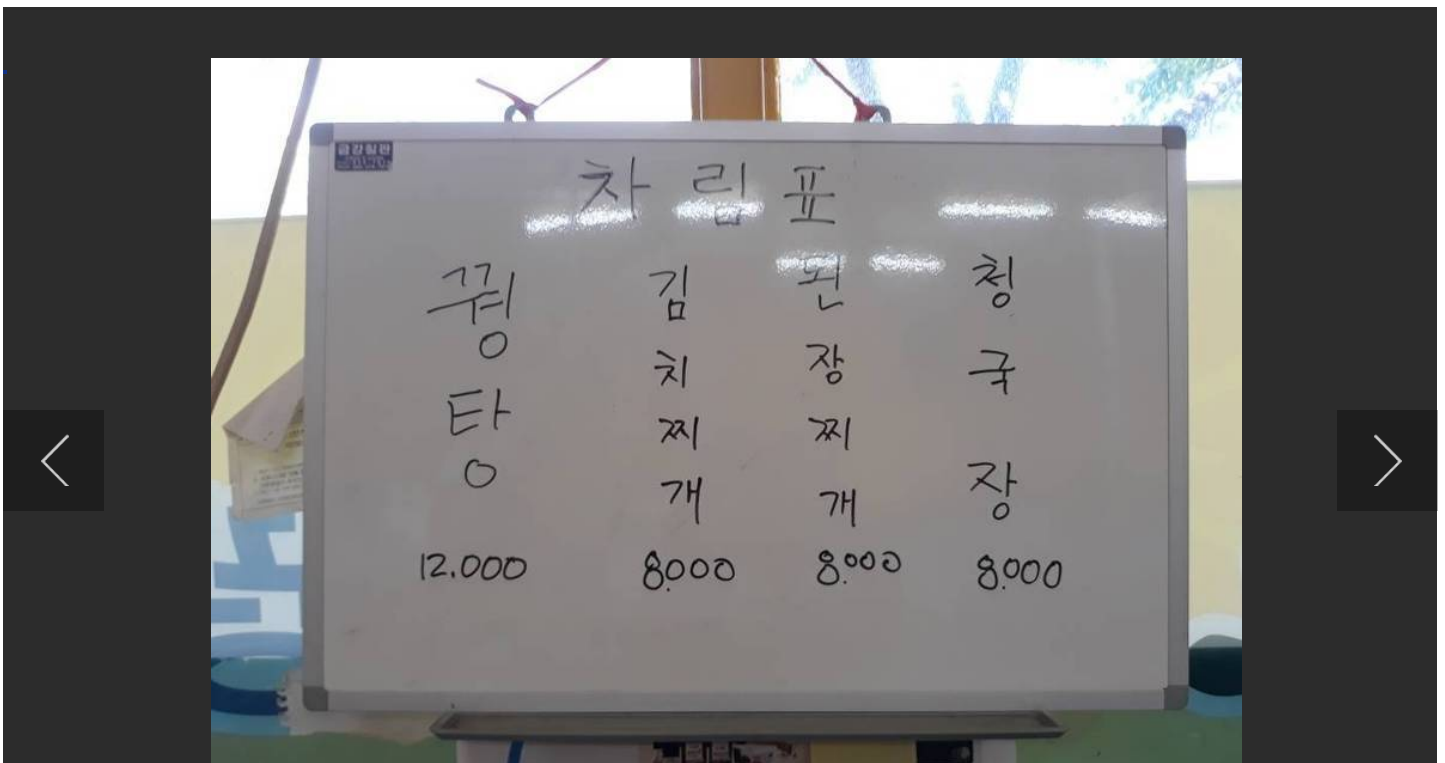 금강칠판
차림표
꿩탕
12.000
김치찌개
8.000
된장찌개
8.000
청국장
8.000